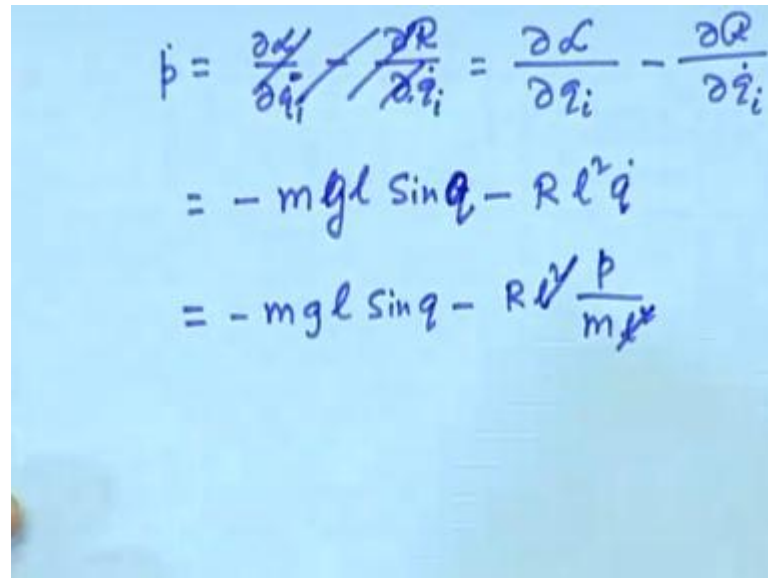 ṗ = ∂ℒ/∂q̇ᵢ - ∂R/∂q̇ᵢ = ∂ℒ/∂qᵢ - ∂R/∂q̇ᵢ
= - mgl Sinq - R l² q̇
= - mgl Sinq - R l² p/(m l²)